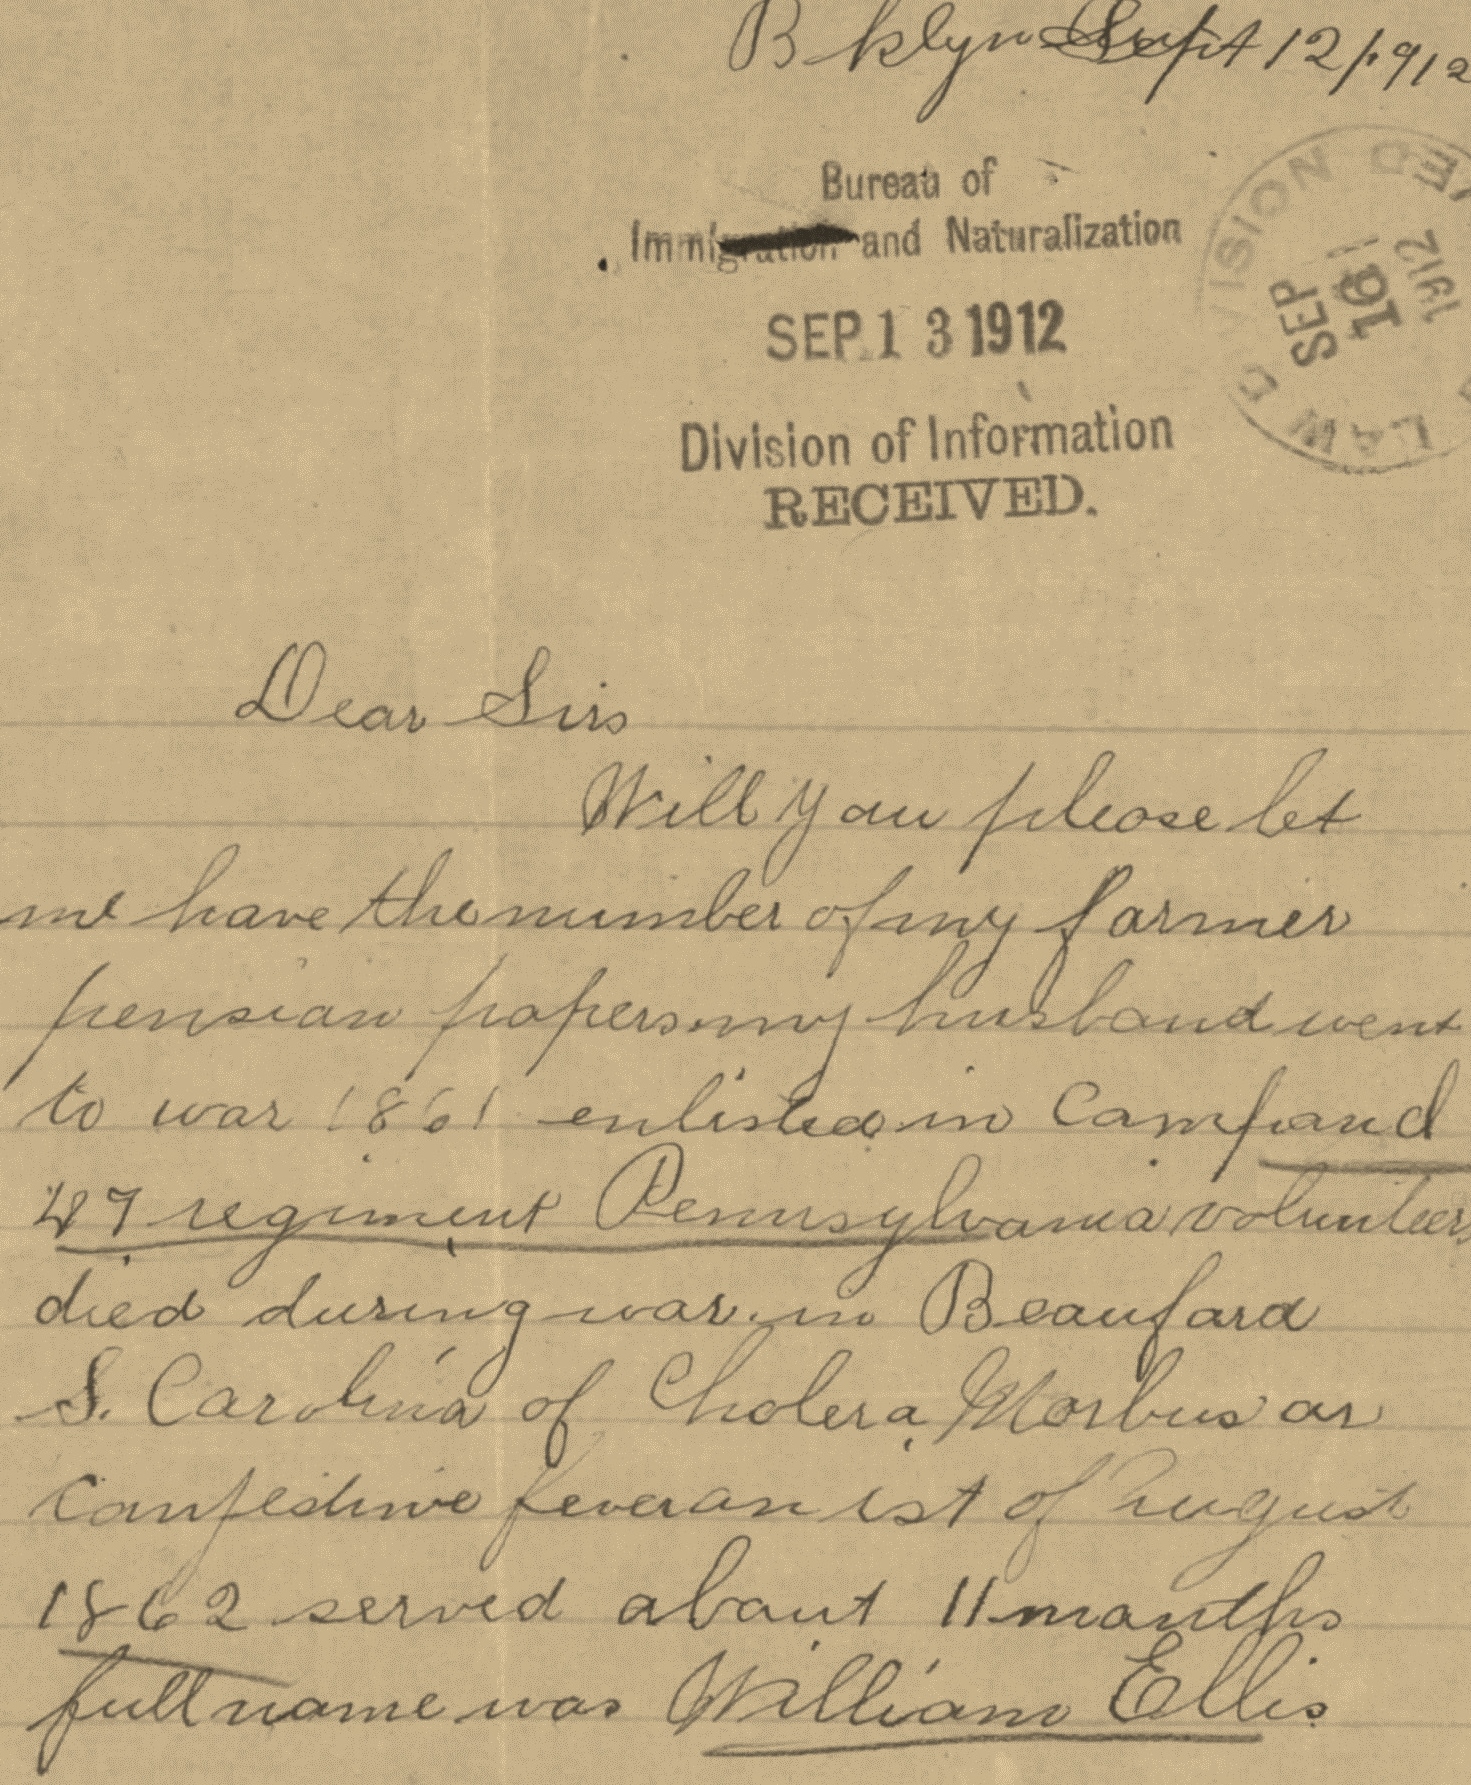 Bklyn Sept 12/1912
Bureau of
Immigration and Naturalization
SEP 13 1912
Division of Information
RECEIVED.
SEP 16 1912
LAW DIVISION
Dear Sirs
Will you please let
me have the number of my former
pension papers my husband went
to war 1861 enlisted in Camp and
47 regiment Pennsylvania volunteers
died during war in Beauford
S. Carolina of Cholera Morbus or
Congestive fever on 1st of August
1862 served about 11 months
full name was William Ellis